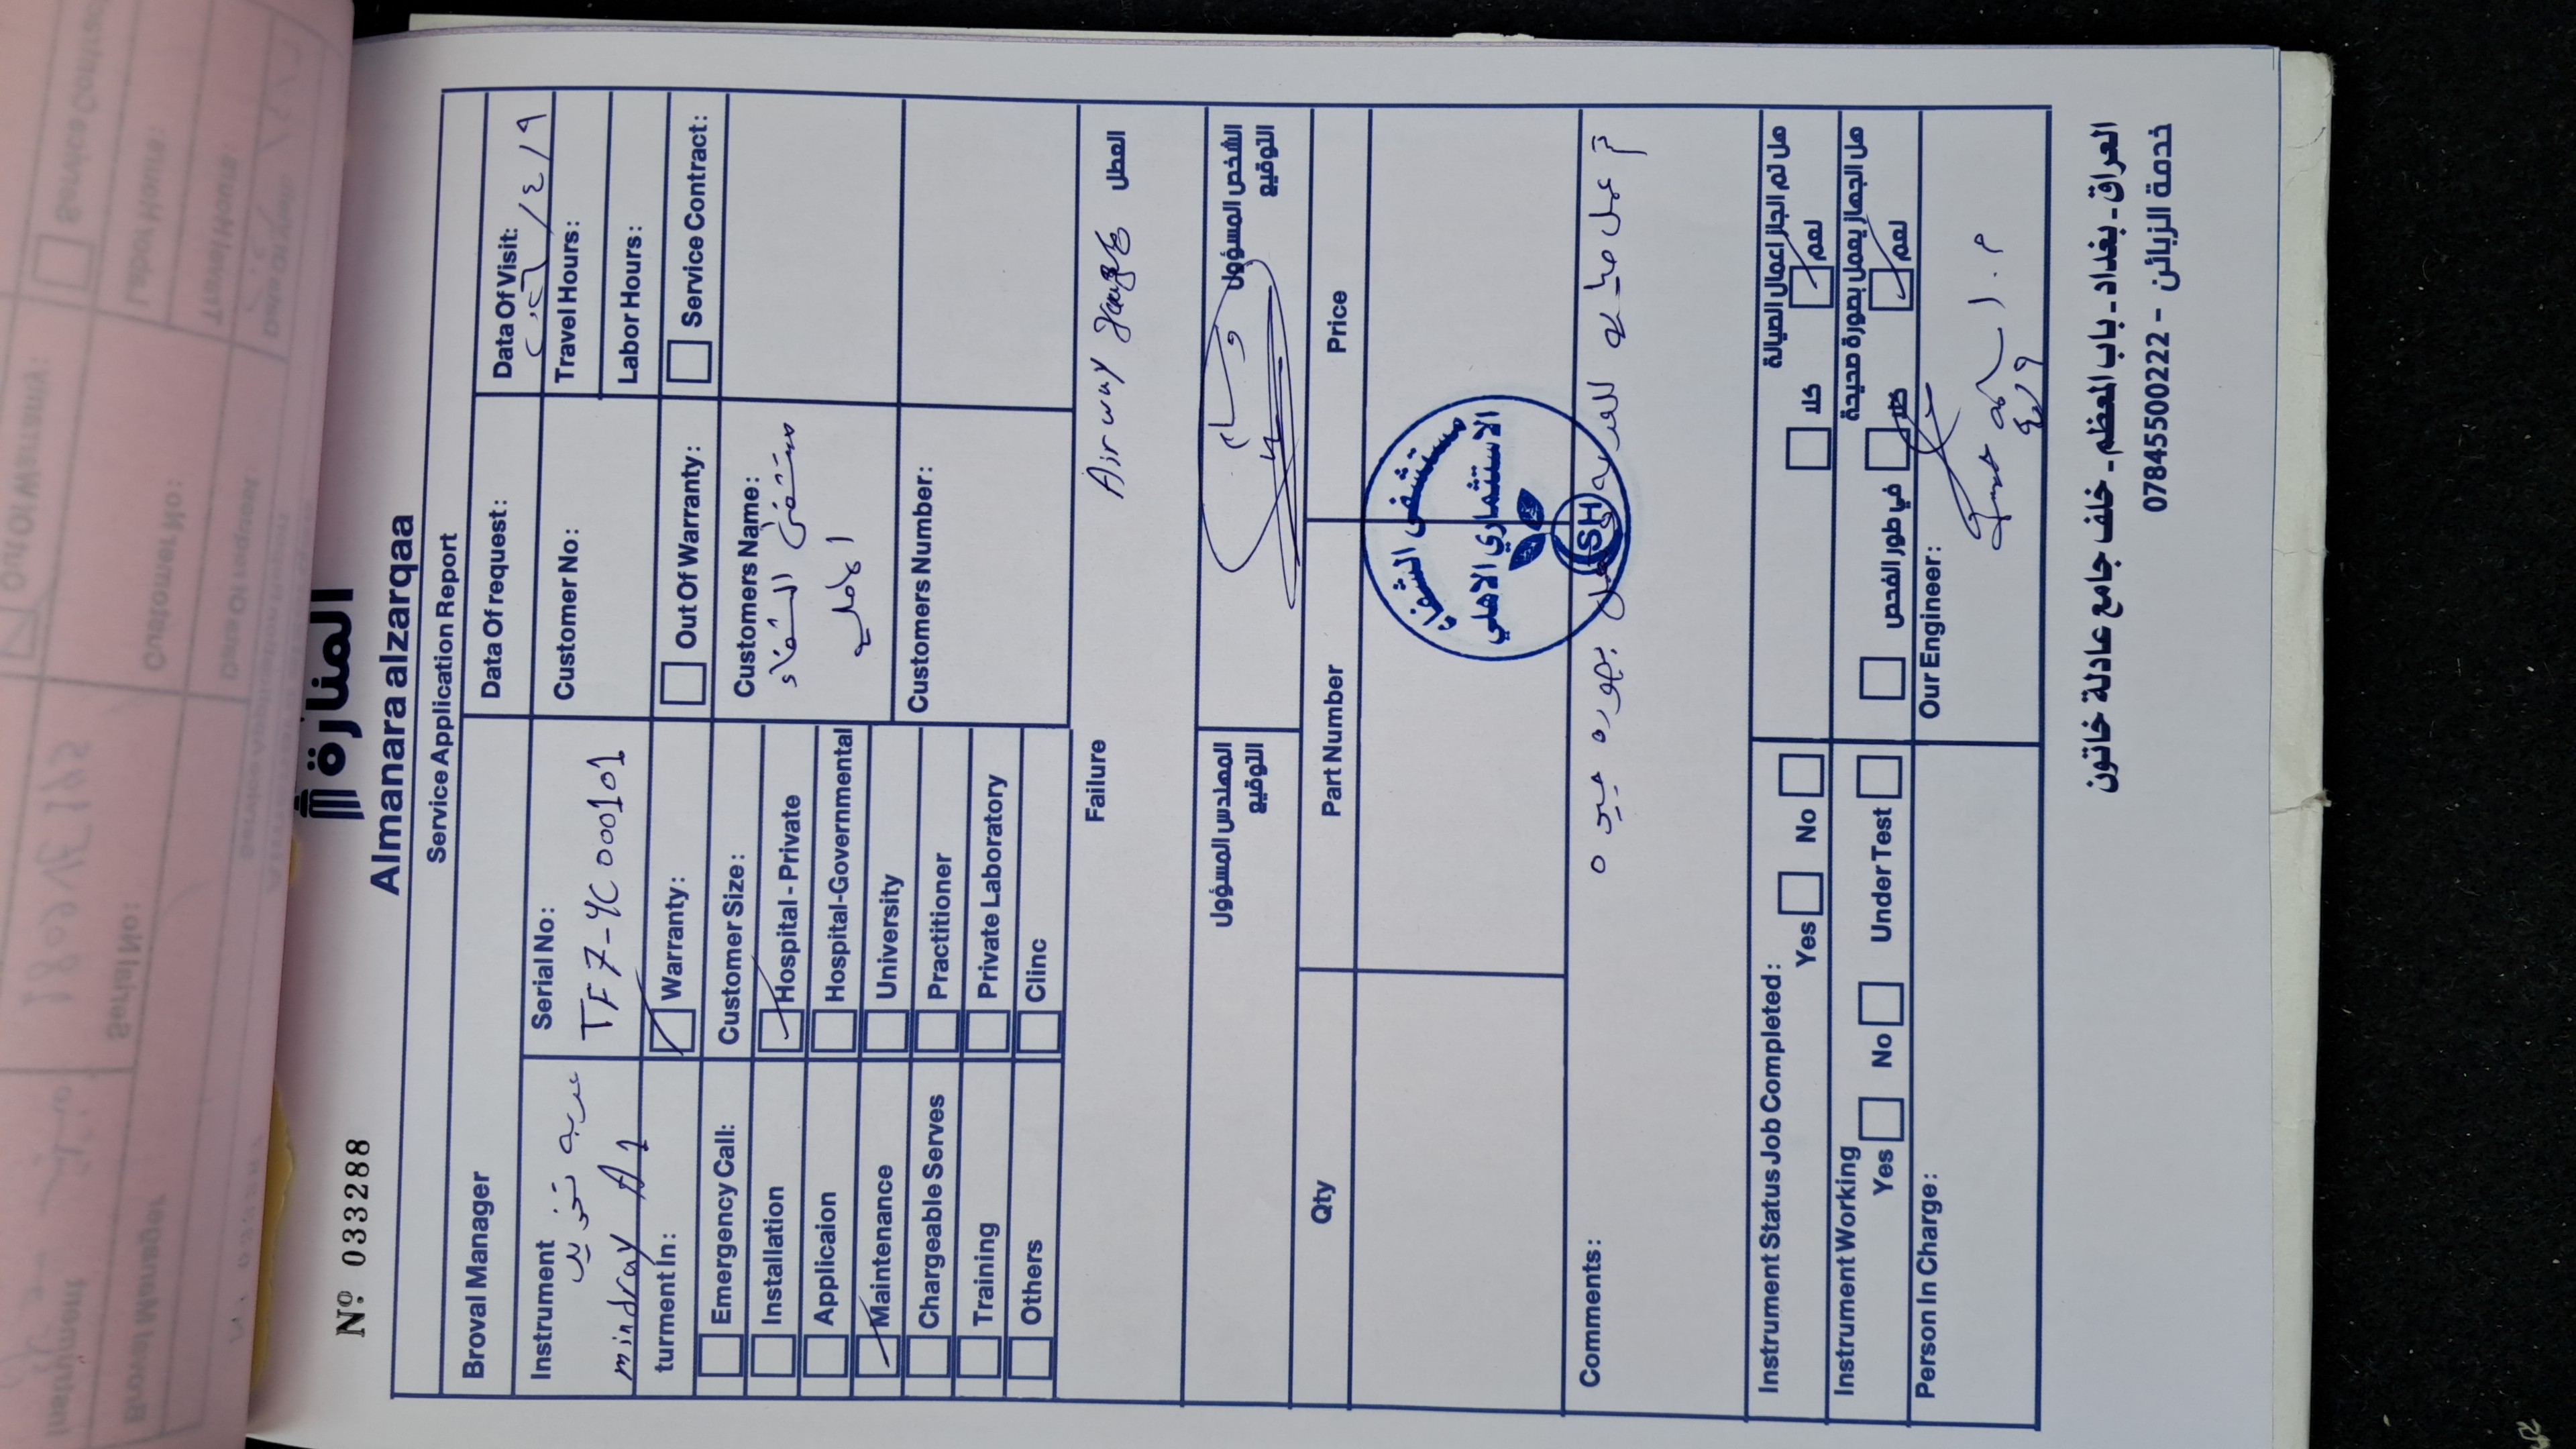 Nº 033288
المنارة
Almanara alzarqaa
Service Application Report
Broval Manager
Data Of request:
Data Of Visit:
٢٠٢٦/٤/٩
Instrument
عربة تخدير
mindray A7
Serial No:
TF7-4C000101
Customer No:
Travel Hours:
Labor Hours:
turment In:
Warranty:
Out Of Warranty:
Service Contract:
Emergency Call:
Customer Size:
Customers Name:
مستشفى الشفاء
الاهلية
Installation
Hospital - Private
Applicaion
Hospital-Governmental
Maintenance
University
Customers Number:
Chargeable Serves
Practitioner
Training
Private Laboratory
Others
Clinc
Failure
العطل
Airway gauge
المهندس المسؤول
التوقيع
الشخص المسؤول
التوقيع
وسام
Qty
Part Number
Price
مستشفى الشفاء
الاستثماري الاهلي
SH
Comments:
تم عمل صيانة للعربة وتعمل بصورة جيدة
Instrument Status Job Completed:
Yes
No
هل تم انجاز اعمال الصيانة
نعم
كلا
Instrument Working
Yes
No
Under Test
هل الجهاز يعمل بصورة صحيحة
نعم
كلا
في طور الفحص
Person In Charge:
Our Engineer:
العراق - بغداد - باب المعظم - خلف جامع عادلة خاتون
خدمة الزبائن - 07845500222